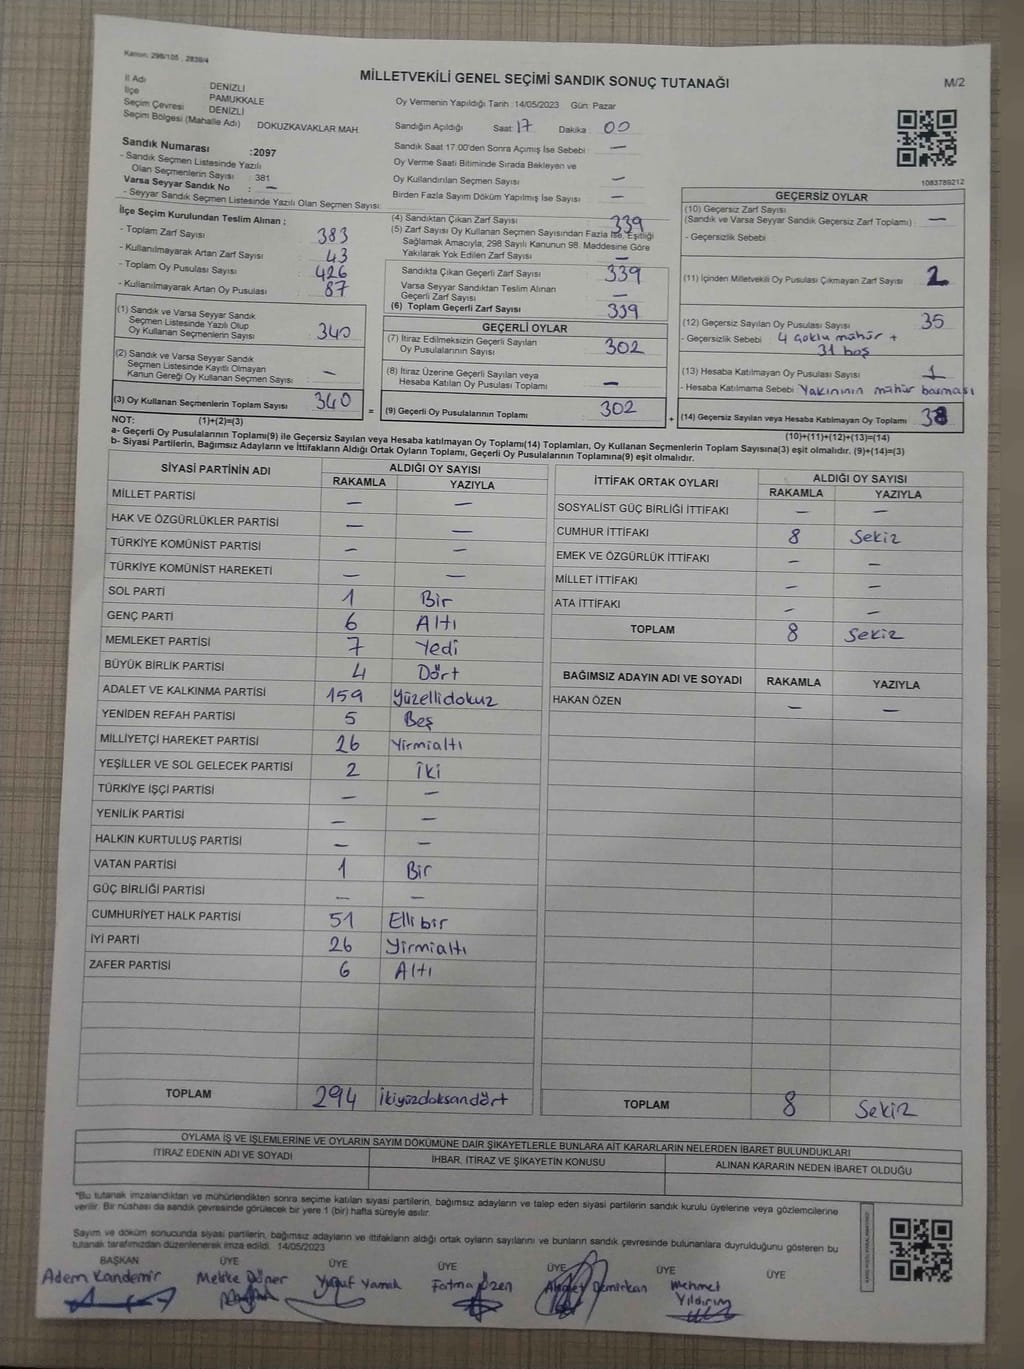 Kanun: 298/105 , 2839/4
MİLLETVEKİLİ GENEL SEÇİMİ SANDIK SONUÇ TUTANAĞI
M/2
İl Adı DENİZLİ
İlçe PAMUKKALE
Seçim Çevresi DENİZLİ
Seçim Bölgesi (Mahalle Adı) DOKUZKAVAKLAR MAH.
Oy Vermenin Yapıldığı Tarih: 14/05/2023 Gün: Pazar
Sandığın Açıldığı Saat: 17 Dakika: 00
Sandık Saat 17.00'den Sonra Açımış İse Sebebi : —
Oy Verme Saati Bitiminde Sırada Bekleyen ve
Oy Kullandırılan Seçmen Sayısı —
Birden Fazla Sayım Döküm Yapılmış İse Sayısı —
Sandık Numarası :2097
- Sandık Seçmen Listesinde Yazılı
Olan Seçmenlerin Sayısı : 381
Varsa Seyyar Sandık No : —
- Seyyar Sandık Seçmen Listesinde Yazılı Olan Seçmen Sayısı:
İlçe Seçim Kurulundan Teslim Alınan ;
- Toplam Zarf Sayısı : 383
- Kullanılmayarak Artan Zarf Sayısı : 43
- Toplam Oy Pusulası Sayısı : 426
- Kullanılmayarak Artan Oy Pusulası : 87
(1) Sandık ve Varsa Seyyar Sandık
Seçmen Listesinde Yazılı Olup
Oy Kullanan Seçmenlerin Sayısı : 340
(2) Sandık ve Varsa Seyyar Sandık
Seçmen Listesinde Kayıtlı Olmayan
Kanun Gereği Oy Kullanan Seçmen Sayısı : —
(3) Oy Kullanan Seçmenlerin Toplam Sayısı : 340
(4) Sandıktan Çıkan Zarf Sayısı : 339
(5) Zarf Sayısı Oy Kullanan Seçmen Sayısından Fazla İse, Eşitliği
Sağlamak Amacıyla; 298 Sayılı Kanunun 98. Maddesine Göre
Yakılarak Yok Edilen Zarf Sayısı : —
Sandıkta Çıkan Geçerli Zarf Sayısı : 339
Varsa Seyyar Sandıktan Teslim Alınan
Geçerli Zarf Sayısı : —
(6) Toplam Geçerli Zarf Sayısı : 339
GEÇERLİ OYLAR
(7) İtiraz Edilmeksizin Geçerli Sayılan
Oy Pusulalarının Sayısı : 302
(8) İtiraz Üzerine Geçerli Sayılan veya
Hesaba Katılan Oy Pusulası Toplamı : —
= (9) Geçerli Oy Pusulalarının Toplamı : 302
1083789212
GEÇERSİZ OYLAR
(10) Geçersiz Zarf Sayısı
(Sandık ve Varsa Seyyar Sandık Geçersiz Zarf Toplamı) : —
- Geçersizlik Sebebi
(11) İçinden Milletvekili Oy Pusulası Çıkmayan Zarf Sayısı : 2
(12) Geçersiz Sayılan Oy Pusulası Sayısı : 35
- Geçersizlik Sebebi 4 çoklu mühür +
31 boş
(13) Hesaba Katılmayan Oy Pusulası Sayısı : 1
- Hesaba Katılmama Sebebi Yakınının mühür basması
+ (14) Geçersiz Sayılan veya Hesaba Katılmayan Oy Toplamı : 38
NOT: (1)+(2)=(3)
(10)+(11)+(12)+(13)=(14)
a- Geçerli Oy Pusulalarının Toplamı(9) ile Geçersiz Sayılan veya Hesaba katılmayan Oy Toplamı(14) Toplamları, Oy Kullanan Seçmenlerin Toplam Sayısına(3) eşit olmalıdır. (9)+(14)=(3)
b- Siyasi Partilerin, Bağımsız Adayların ve İttifakların Aldığı Ortak Oyların Toplamı, Geçerli Oy Pusulalarının Toplamına(9) eşit olmalıdır.
SİYASİ PARTİNİN ADI ALDIĞI OY SAYISI
RAKAMLA YAZIYLA
MİLLET PARTİSİ — —
HAK VE ÖZGÜRLÜKLER PARTİSİ — —
TÜRKİYE KOMÜNİST PARTİSİ — —
TÜRKİYE KOMÜNİST HAREKETİ — —
SOL PARTİ 1 Bir
GENÇ PARTİ 6 Altı
MEMLEKET PARTİSİ 7 Yedi
BÜYÜK BİRLİK PARTİSİ 4 Dört
ADALET VE KALKINMA PARTİSİ 159 Yüzellidokuz
YENİDEN REFAH PARTİSİ 5 Beş
MİLLİYETÇİ HAREKET PARTİSİ 26 Yirmialtı
YEŞİLLER VE SOL GELECEK PARTİSİ 2 İki
TÜRKİYE İŞÇİ PARTİSİ — —
YENİLİK PARTİSİ — —
HALKIN KURTULUŞ PARTİSİ — —
VATAN PARTİSİ 1 Bir
GÜÇ BİRLİĞİ PARTİSİ — —
CUMHURİYET HALK PARTİSİ 51 Ellibir
İYİ PARTİ 26 Yirmialtı
ZAFER PARTİSİ 6 Altı
TOPLAM 294 İkiyüzdoksandört
İTTİFAK ORTAK OYLARI ALDIĞI OY SAYISI
RAKAMLA YAZIYLA
SOSYALİST GÜÇ BİRLİĞİ İTTİFAKI — —
CUMHUR İTTİFAKI 8 Sekiz
EMEK VE ÖZGÜRLÜK İTTİFAKI — —
MİLLET İTTİFAKI — —
ATA İTTİFAKI — —
TOPLAM 8 Sekiz
BAĞIMSIZ ADAYIN ADI VE SOYADI RAKAMLA YAZIYLA
HAKAN ÖZEN — —
TOPLAM 8 Sekiz
OYLAMA İŞ VE İŞLEMLERİNE VE OYLARIN SAYIM DÖKÜMÜNE DAİR ŞİKAYETLERLE BUNLARA AİT KARARLARIN NELERDEN İBARET BULUNDUKLARI
İTİRAZ EDENİN ADI VE SOYADI İHBAR, İTİRAZ VE ŞİKAYETİN KONUSU ALINAN KARARIN NEDEN İBARET OLDUĞU
*Bu tutanak imzalandıktan ve mühürlendikten sonra seçime katılan siyasi partilerin, bağımsız adayların ve talep eden siyasi partilerin sandık kurulu üyelerine veya gözlemcilerine
verilir. Bir nüshası da sandık çevresinde görülecek bir yere 1 (bir) hafta süreyle asılır.
Sayım ve döküm sonucunda siyasi partilerin, bağımsız adayların ve ittifakların aldığı ortak oyların sayılarını ve bunların sandık çevresinde bulunanlara duyrulduğunu gösteren bu
tutanak tarafımızdan düzenlenerek imza edildi. 14/05/2023
BAŞKAN ÜYE ÜYE ÜYE ÜYE ÜYE ÜYE
Adem Kandemir Mekke Döner Yusuf Yamak Fatma Özen Ahmet Demirkan Mehmet
Yıldırım